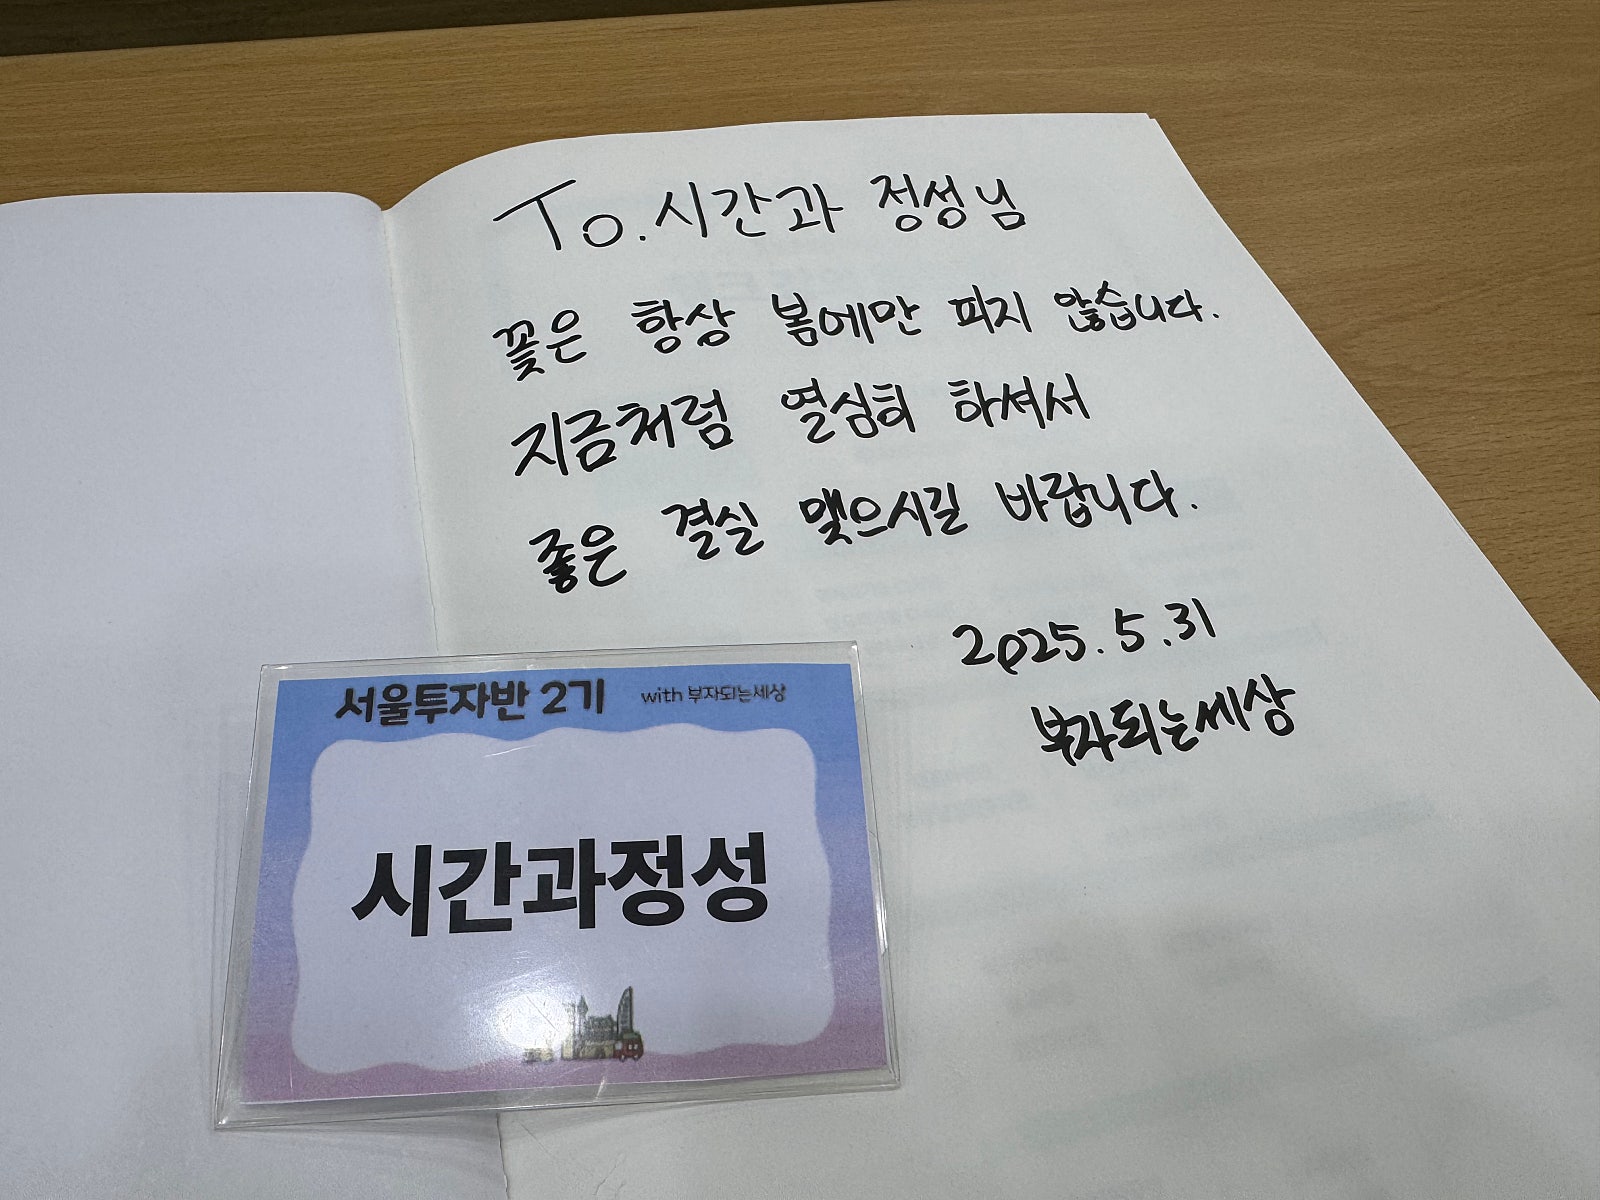 To. 시간과 정성님
꽃은 항상 봄에만 피지 않습니다.
지금처럼 열심히 하셔서
좋은 결실 맺으시길 바랍니다.
2025. 5. 31
부자되는세상
서울투자반 2기 with 부자되는세상
시간과정성